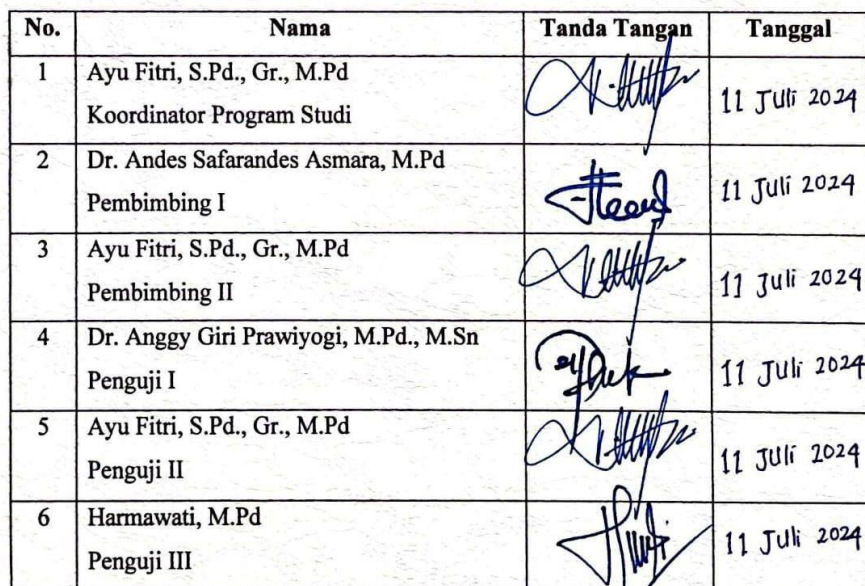 No. Nama Tanda Tangan Tanggal
1 Ayu Fitri, S.Pd., Gr., M.Pd
Koordinator Program Studi
11 Juli 2024
2 Dr. Andes Safarandes Asmara, M.Pd
Pembimbing I
11 Juli 2024
3 Ayu Fitri, S.Pd., Gr., M.Pd
Pembimbing II
11 Juli 2024
4 Dr. Anggy Giri Prawiyogi, M.Pd., M.Sn
Penguji I
11 Juli 2024
5 Ayu Fitri, S.Pd., Gr., M.Pd
Penguji II
11 Juli 2024
6 Harmawati, M.Pd
Penguji III
11 Juli 2024